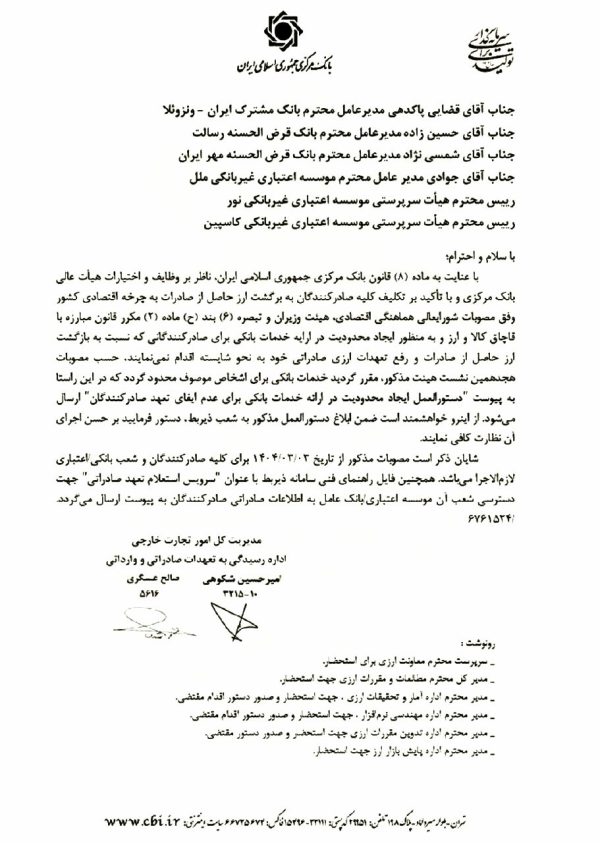 سرمایه‌گذاری برای تولید
بانک مرکزی جمهوری اسلامی ایران
جناب آقای قضایی پاکدهی مدیرعامل محترم بانک مشترک ایران - ونزوئلا
جناب آقای حسین زاده مدیرعامل محترم بانک قرض الحسنه رسالت
جناب آقای شمسی نژاد مدیرعامل محترم بانک قرض الحسنه مهر ایران
جناب آقای جوادی مدیر عامل محترم موسسه اعتباری غیربانکی ملل
رییس محترم هیأت سرپرستی موسسه اعتباری غیربانکی نور
رییس محترم هیأت سرپرستی موسسه اعتباری غیربانکی کاسپین
با سلام و احترام؛
با عنایت به ماده (۸) قانون بانک مرکزی جمهوری اسلامی ایران، ناظر بر وظایف و اختیارات هیأت عالی
بانک مرکزی و با تأکید بر تکلیف کلیه صادرکنندگان به برگشت ارز حاصل از صادرات به چرخه اقتصادی کشور
وفق مصوبات شورایعالی هماهنگی اقتصادی، هیئت وزیران و تبصره (۶) بند (ح) ماده (۲) مکرر قانون مبارزه با
قاچاق کالا و ارز و به منظور ایجاد محدودیت در ارایه خدمات بانکی برای صادرکنندگانی که نسبت به بازگشت
ارز حاصل از صادرات و رفع تعهدات ارزی صادراتی خود به نحو شایسته اقدام نمی‌نمایند، حسب مصوبات
هجدهمین نشست هیئت مذکور، مقرر گردید خدمات بانکی برای اشخاص موصوف محدود گردد که در این راستا
به پیوست "دستورالعمل ایجاد محدودیت در ارائه خدمات بانکی برای عدم ایفای تعهد صادرکنندگان" ارسال
می‌شود. از اینرو خواهشمند است ضمن ابلاغ دستورالعمل مذکور به شعب ذیربط، دستور فرمایید بر حسن اجرای
آن نظارت کافی نمایند.
شایان ذکر است مصوبات مذکور از تاریخ ۱۴۰۴/۰۳/۰۳ برای کلیه صادرکنندگان و شعب بانکی/اعتباری
لازم‌الاجرا می‌باشد. همچنین فایل راهنمای فنی سامانه ذیربط با عنوان "سرویس استعلام تعهد صادراتی" جهت
دسترسی شعب آن موسسه اعتباری/بانک عامل به اطلاعات صادراتی صادرکنندگان به پیوست ارسال می‌گردد.
/۶۷۶۱۵۲۴
مدیریت کل امور تجارت خارجی
اداره رسیدگی به تعهدات صادراتی و وارداتی
امیرحسین شکوهی صالح عسگری
۳۲۱۵-۱۰ ۵۶۱۶
رونوشت :
_ سرپرست محترم معاونت ارزی برای استحضار.
_ مدیر کل محترم مطالعات و مقررات ارزی جهت استحضار.
_ مدیر محترم اداره آمار و تحقیقات ارزی ، جهت استحضار و صدور دستور اقدام مقتضی.
_ مدیر محترم اداره مهندسی نرم‌افزار ، جهت استحضار و صدور دستور اقدام مقتضی.
_ مدیر محترم اداره تدوین مقررات ارزی جهت استحضار و صدور دستور مقتضی.
_ مدیر محترم اداره پایش بازار ارز جهت استحضار.
تهران-بلوار میرداماد-پلاک ۱۹۸ تلفن: ۲۹۹۵۱ کدپستی: ۳۳۱۱۱-۱۵۴۹۶ فاکس: ۶۶۷۳۵۶۷۴ سایت اینترنتی: www.cbi.ir